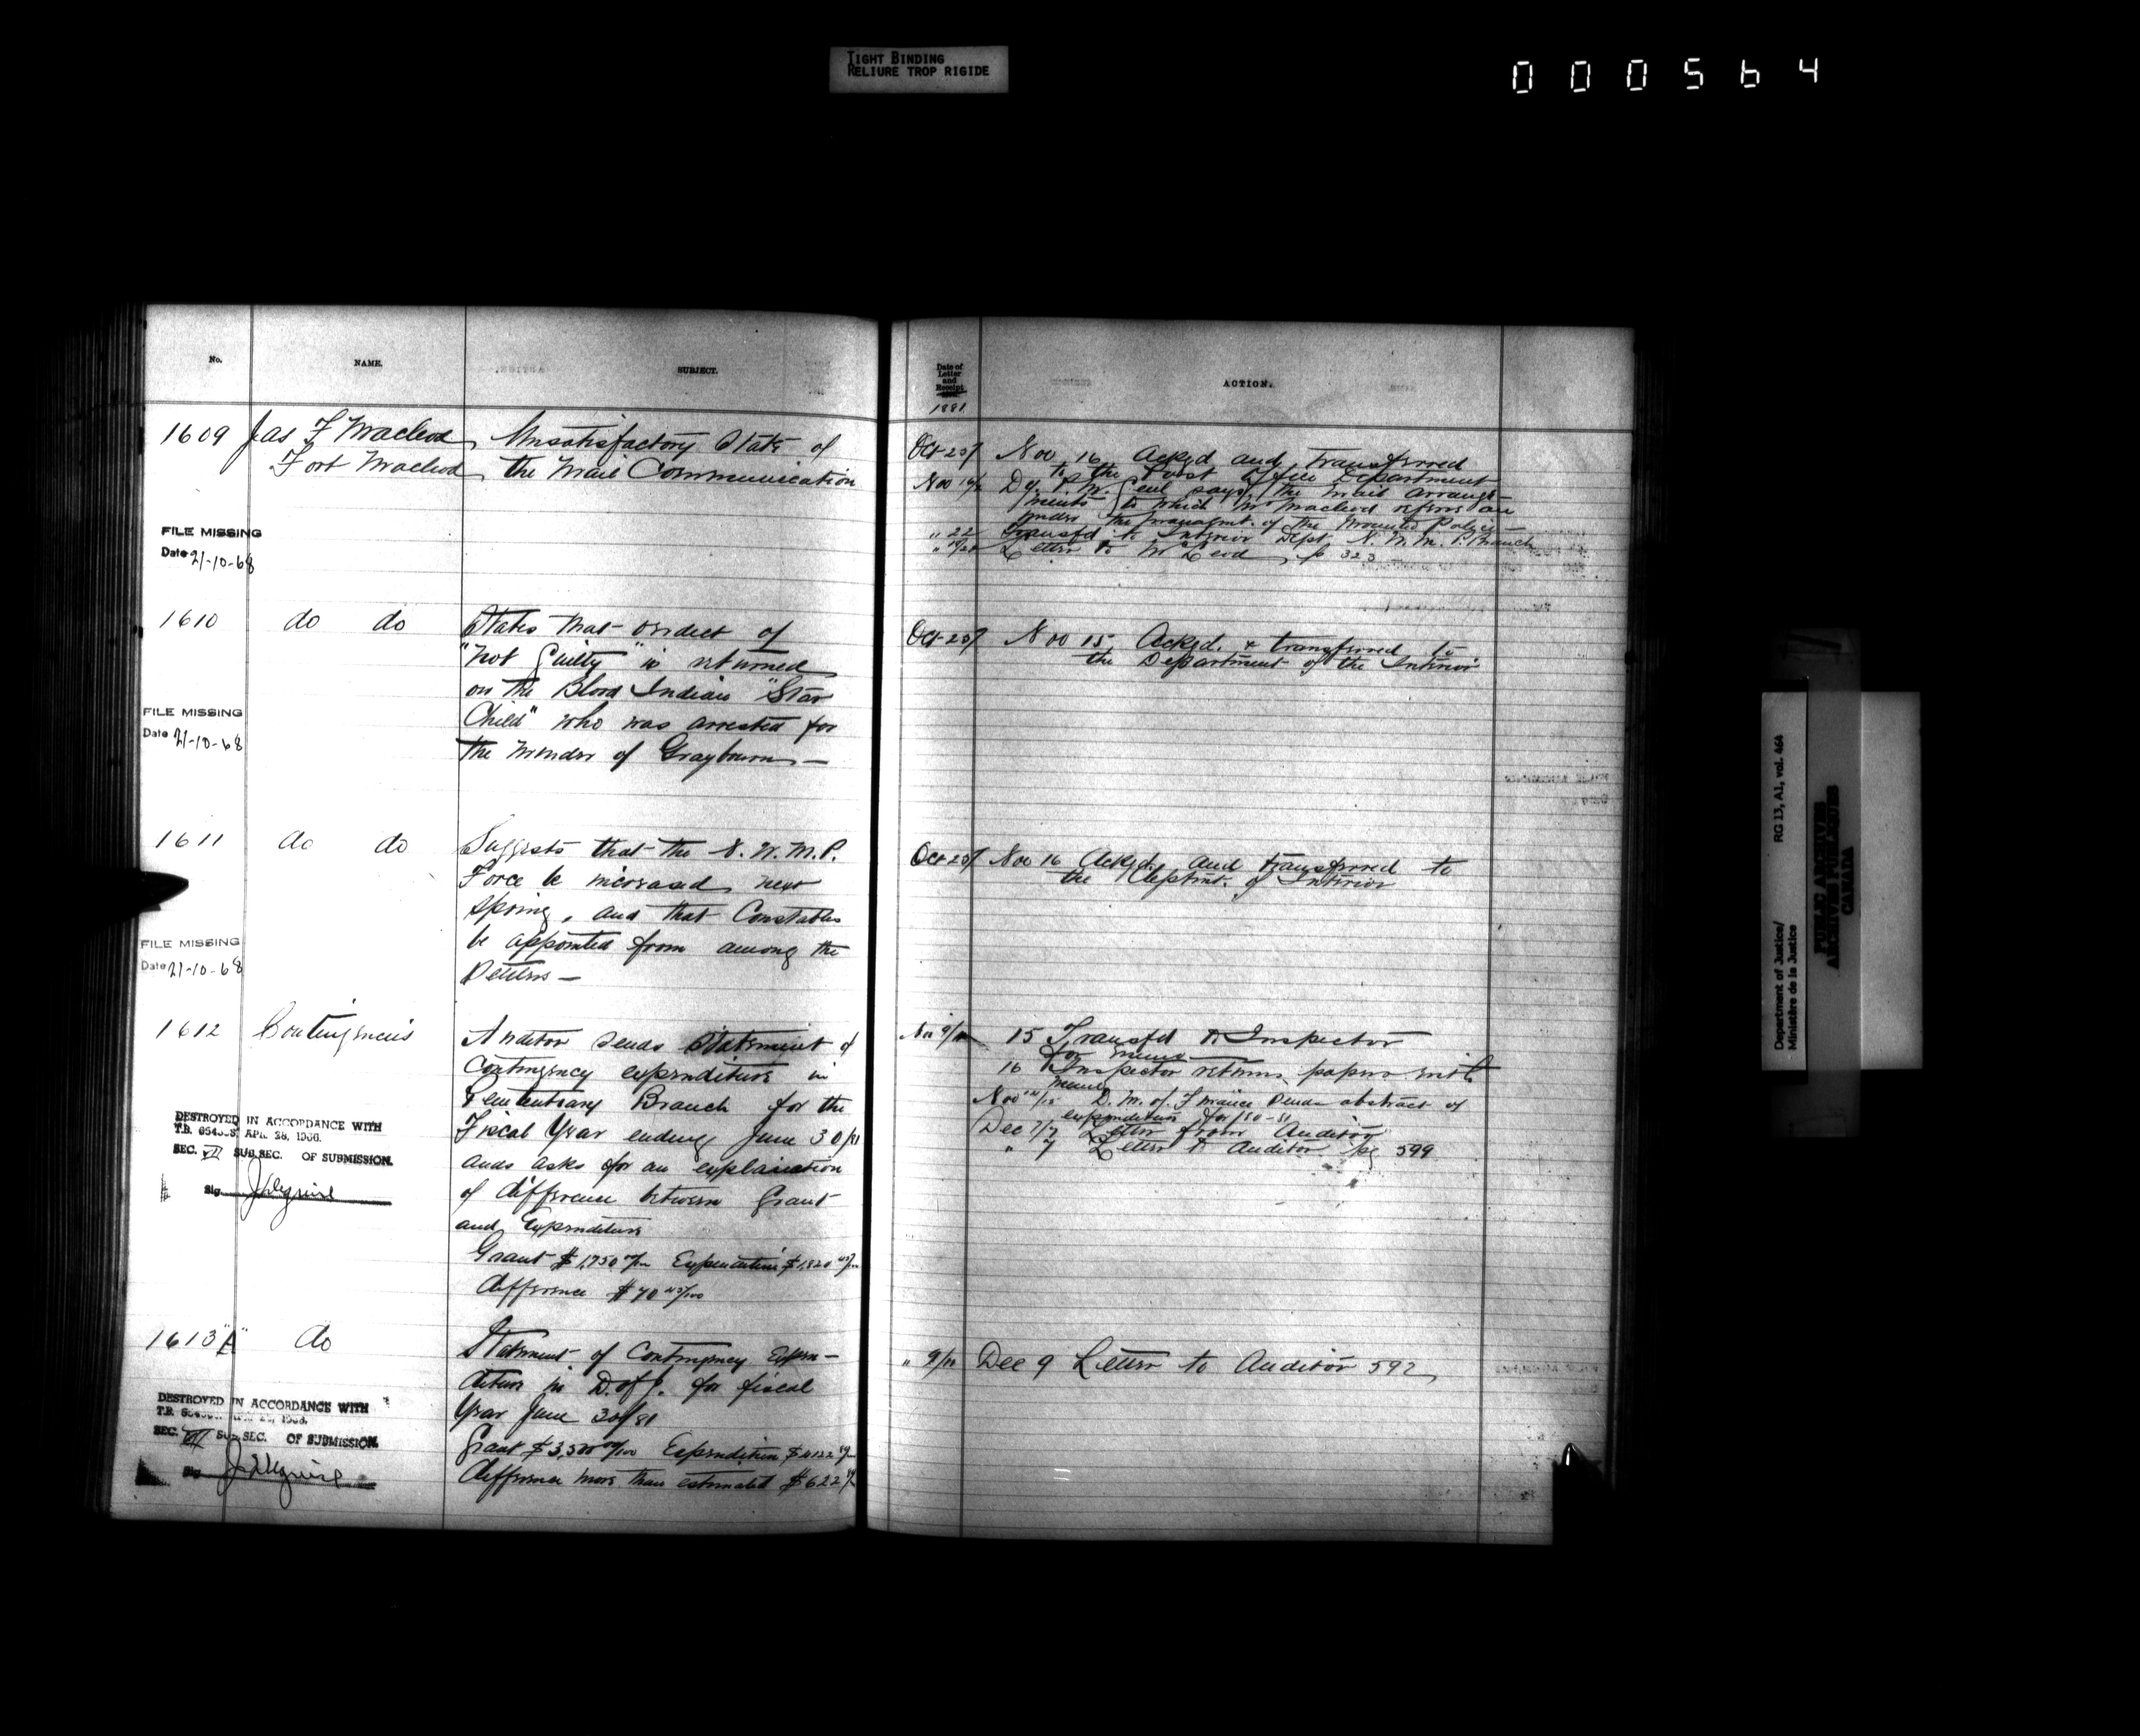 TIGHT BINDING
RELIURE TROP RIGIDE
000564
No. NAME. SUBJECT.
1609 Jas F Macleod Unsatisfactory State of
Fort Macleod the Mail Communication
FILE MISSING
Date 21-10-68
1610 do do States that verdict of
"Not Guilty" is returned
on the Blood Indian "Star
Child" who was arrested for
the Murder of Graybourn —
FILE MISSING
Date 21-10-68
1611 do do Suggests that the N. W. M. P.
Force be increased next
spring, and that Constables
be appointed from among the
Settlers —
FILE MISSING
Date 21-10-68
1612 Contingencies Auditor sends statement of
Contingency expenditure in
Penitentiary Branch for the
Fiscal Year ending June 30/81
and asks for an explanation
of difference between Grant
and Expenditure
Grant $1,750 00/100 Expenditure $1,820 43/100
difference $70 43/100
DESTROYED IN ACCORDANCE WITH
T.B. APR. 28, 1966.
SEC. VII SUB.SEC. OF SUBMISSION.
Sig
1613 "A" do Statement of Contingency Expen-
diture in D. of J. for fiscal
Year June 30/81
Grant $3,500 00/100 Expenditure $4122
difference more than estimated $622
DESTROYED IN ACCORDANCE WITH
T.B.
SEC. VII SUB.SEC. OF SUBMISSION.
Sig
Date of
Letter
and
Receipt.
ACTION.
1881
Oct 20/7 Nov 16 Ackgd and transferred
to the Post Office Department
Nov 19/ Dy. P. M. Genl says the mail arrange-
ments to which Mr Macleod refers are
under the managmt. of the Mounted Police
" 22 Transfd to Interior Dept. N. W. M. P. Branch
Letter to McLeod p 323
Oct 20/7 Nov 15 Ackgd. & transferred to
the Department of the Interior
Oct 20/7 Nov 16 Ackgd. and transferred to
the Deptmt. of Interior
Nov 9/10 15 Transfd to Inspector
for memo
16 Inspector returns papers with
memo
Nov D. M. of Finance sends abstract of
expenditure for 80-81
Dec 7/7 Letter from Auditor
" 7 Letter to Auditor pg 599
" 9/10 Dec 9 Letter to Auditor 592
Department of Justice/
Ministère de la Justice
RG 13, A1, vol. 464
PUBLIC ARCHIVES
ARCHIVES PUBLIQUES
CANADA